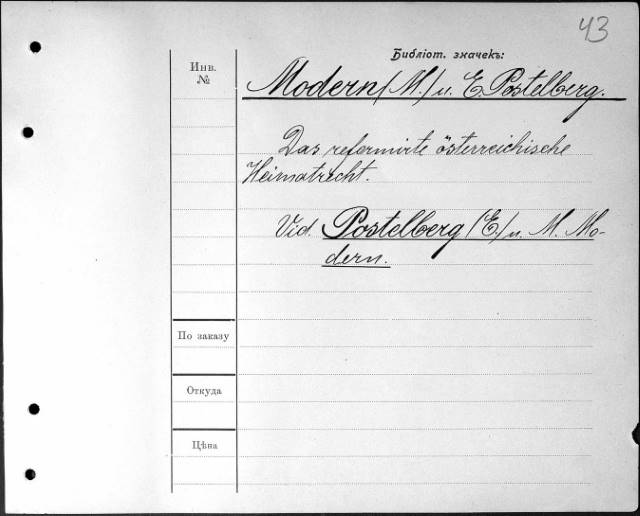 43
Библіот. значекъ:
Инв.
№
Modern (M.) u. E. Postelberg.
Das reformirte österreichische
Heimatrecht.
Vid. Postelberg (E.) u. M. Mo-
dern.
По заказу
Откуда
Цѣна